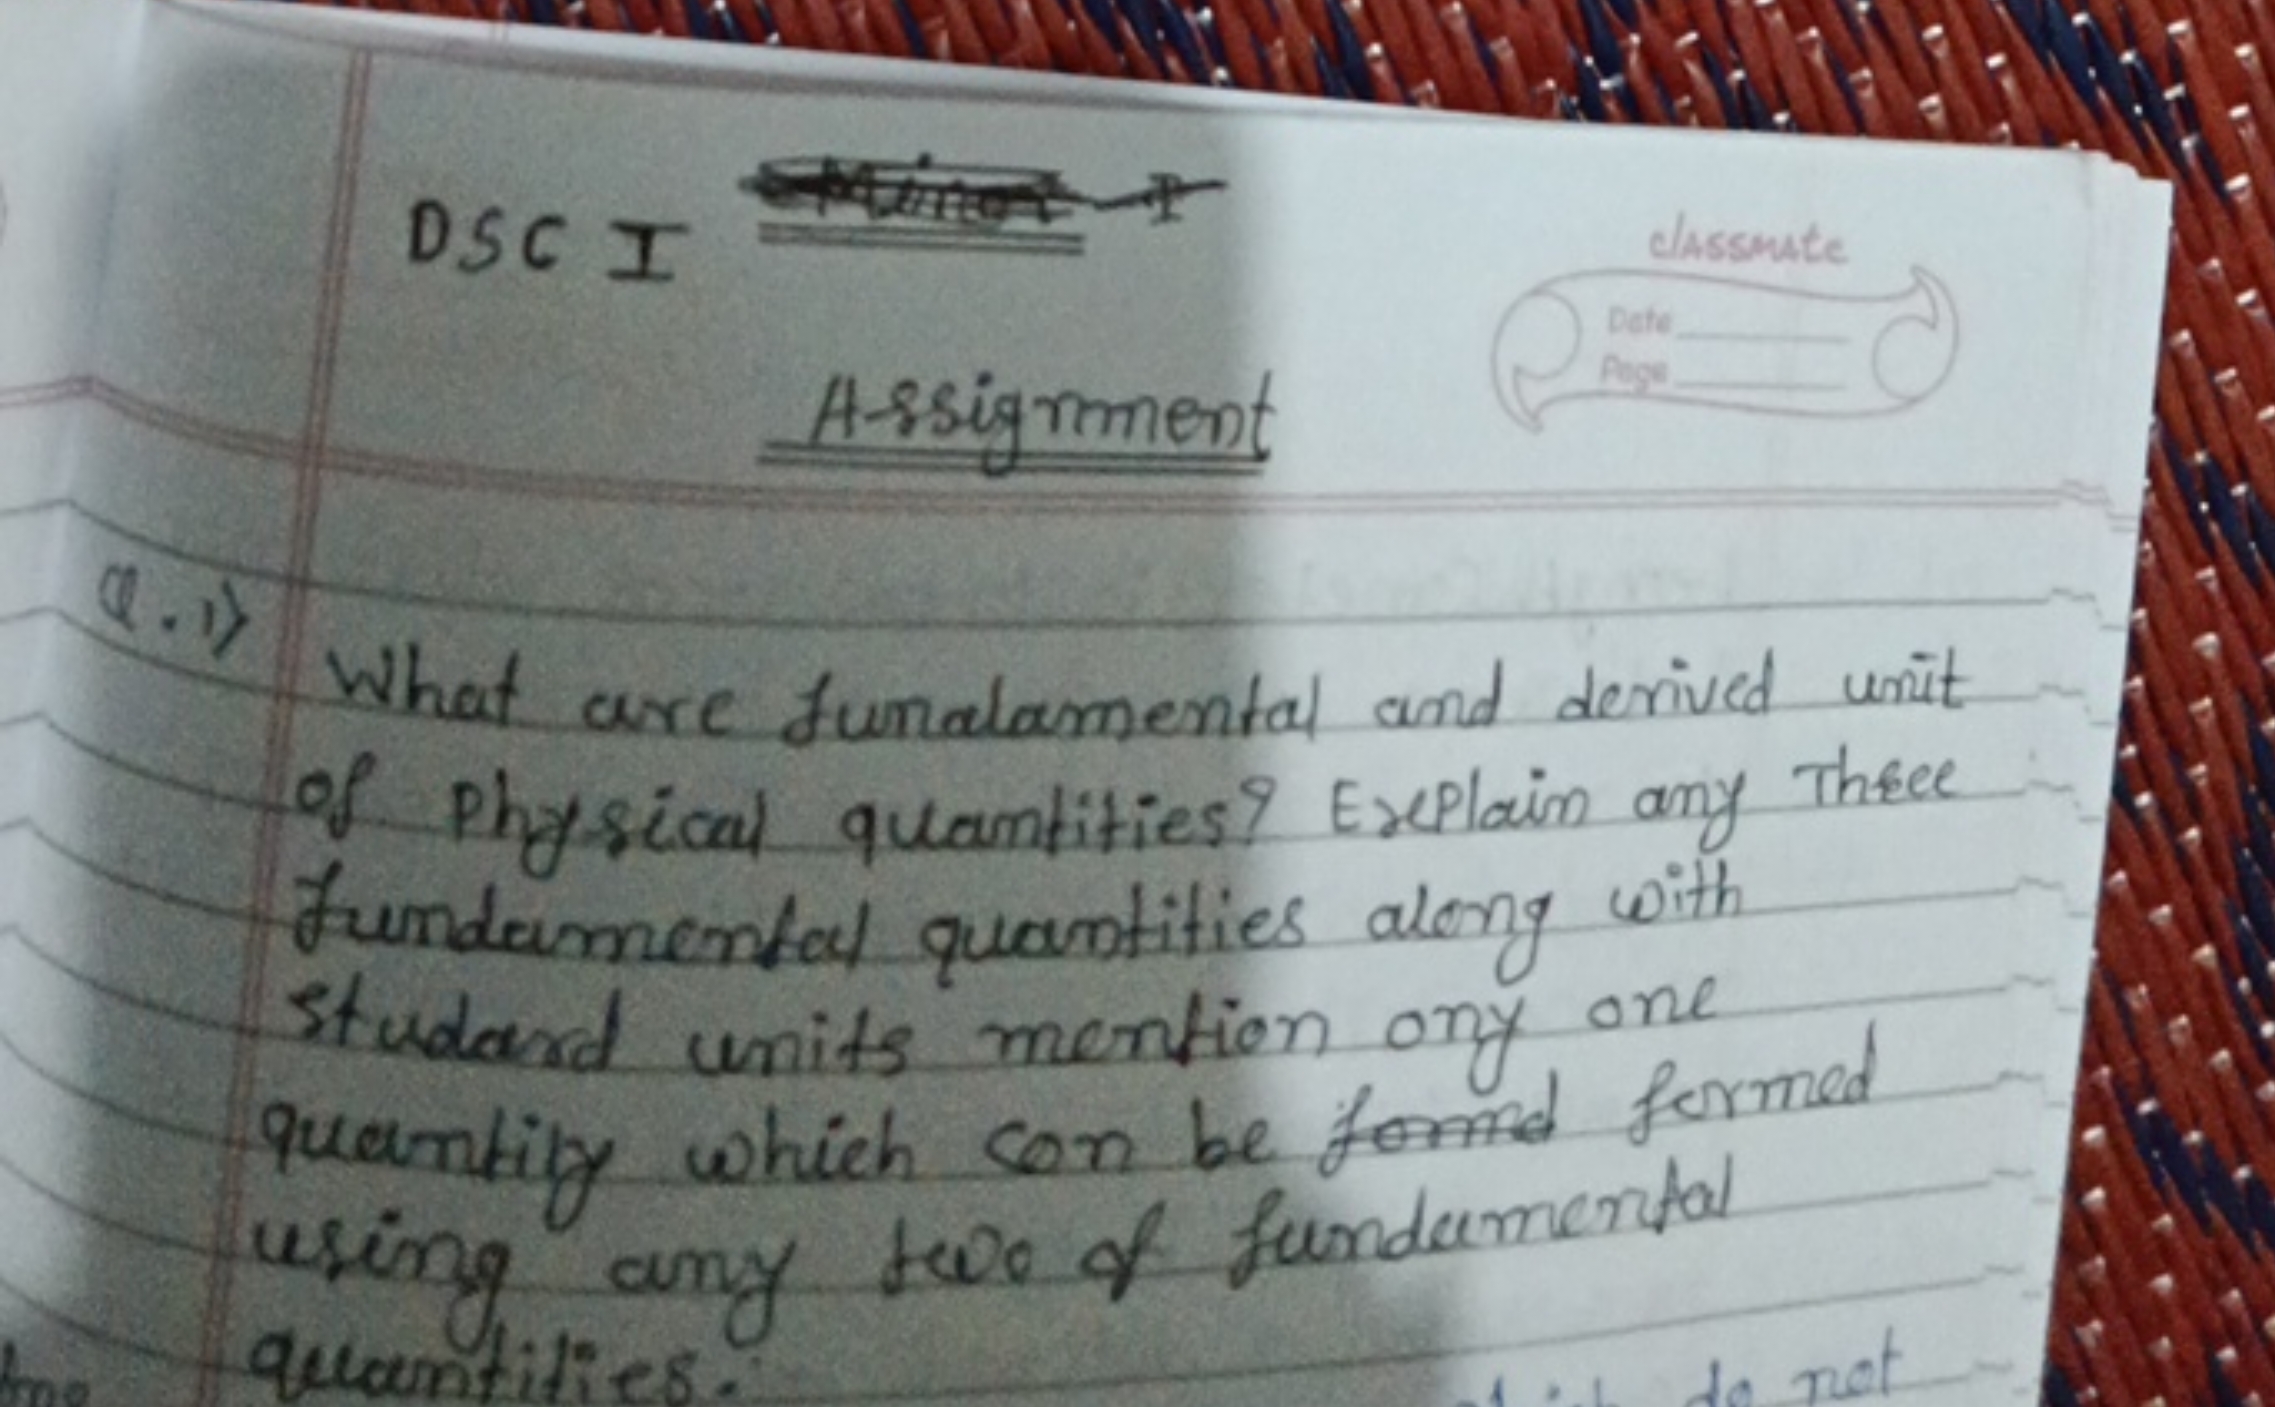 DSC I
classmate
Date
Page
Assignment
Q.1) What are fundalamental and derived unit
of Physical quantities? Explain any Three
fundamental quantities along with
studard units mention ony one
quantity which con be formed formed
using any two of fundamental
quantities.
do not